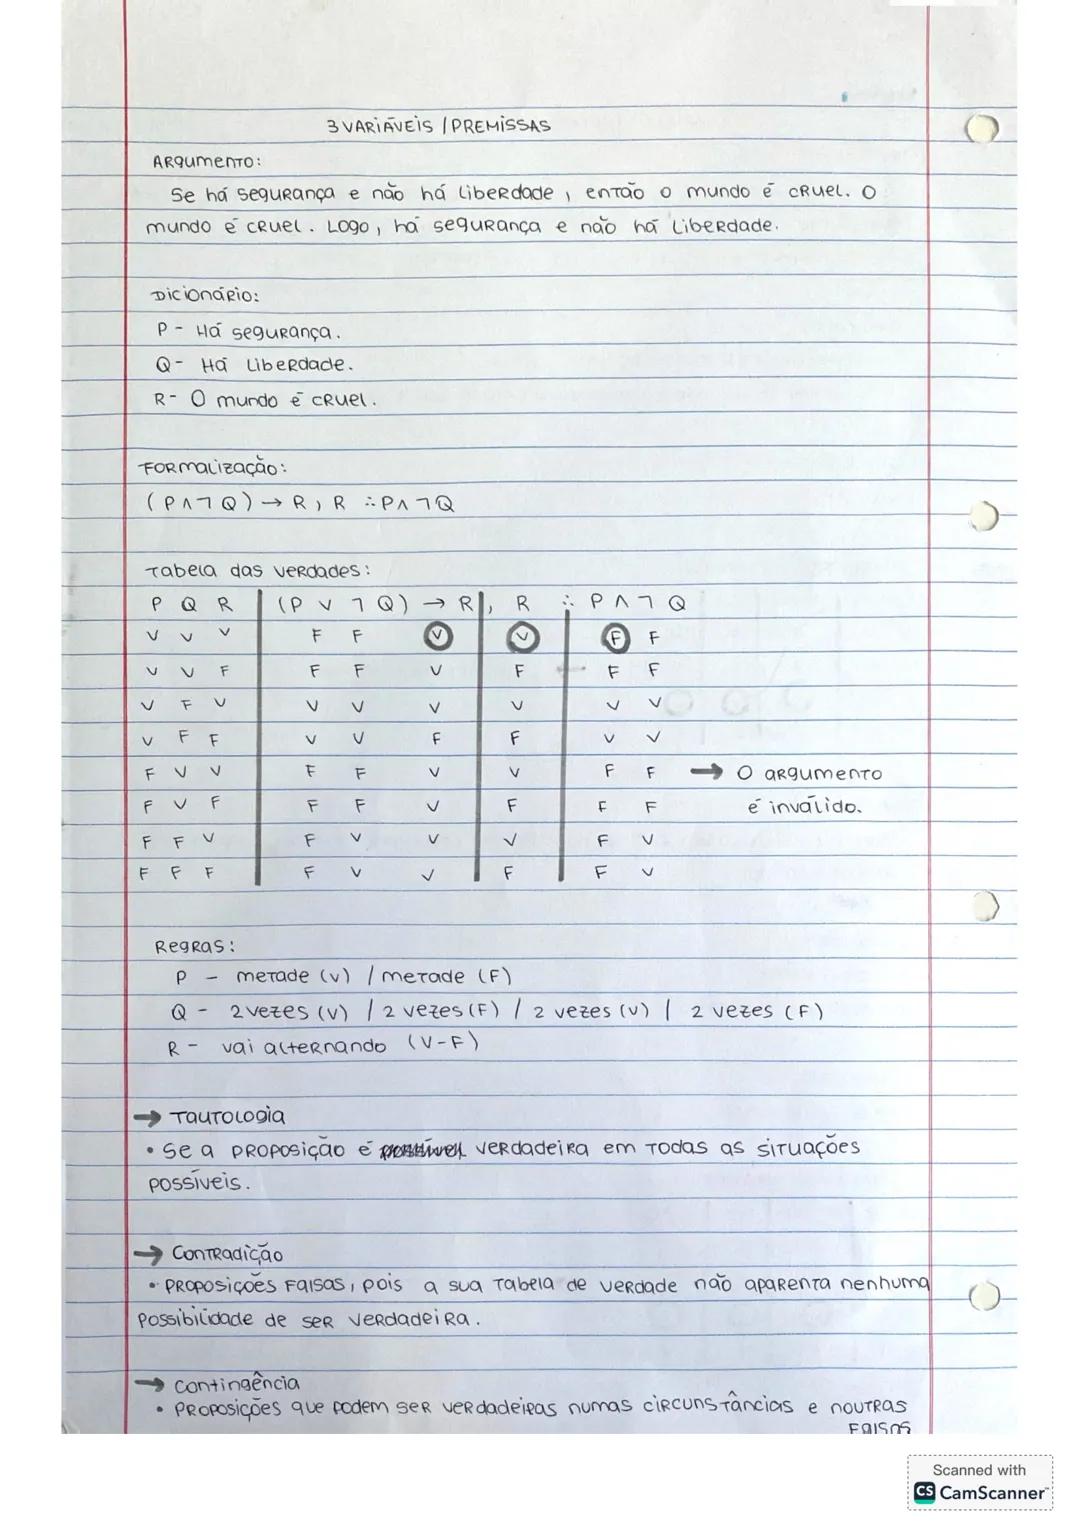 3 VARIÁVEIS / PREMISSAS
Argumento:
Se há segurança e não há liberdade, então o mundo é cruel. O
mundo é cruel. Logo, há segurança e não há liberdade.
Dicionário:
P - Há segurança.
Q - Há liberdade.
R - O mundo é cruel.
Formalização:
(P ∧ ¬ Q) → R, R ∴ P ∧ ¬ Q
Tabela das verdades:
P Q R | (P ∨ ¬ Q) → R |, R ∴ P ∧ ¬ Q
V V V F F V V F F
V V F F F V F F F
V F V V V V V V V
V F F V V F F V V
F V V F F V V F F → O argumento
F V F F F V F F F é inválido.
F F V F V V V F V
F F F F V V F F V
Regras:
P - metade (V) / metade (F)
Q - 2 vezes (V) / 2 vezes (F) / 2 vezes (V) / 2 vezes (F)
R - vai alternando (V-F)
→ Tautologia
• Se a proposição é verdadeira em todas as situações
possíveis.
→ Contradição
• Proposições falsas, pois a sua tabela de verdade não aparenta nenhuma
possibilidade de ser verdadeira.
→ Contingência
• Proposições que podem ser verdadeiras numas circunstâncias e noutras
falsas
Scanned with
CS CamScanner